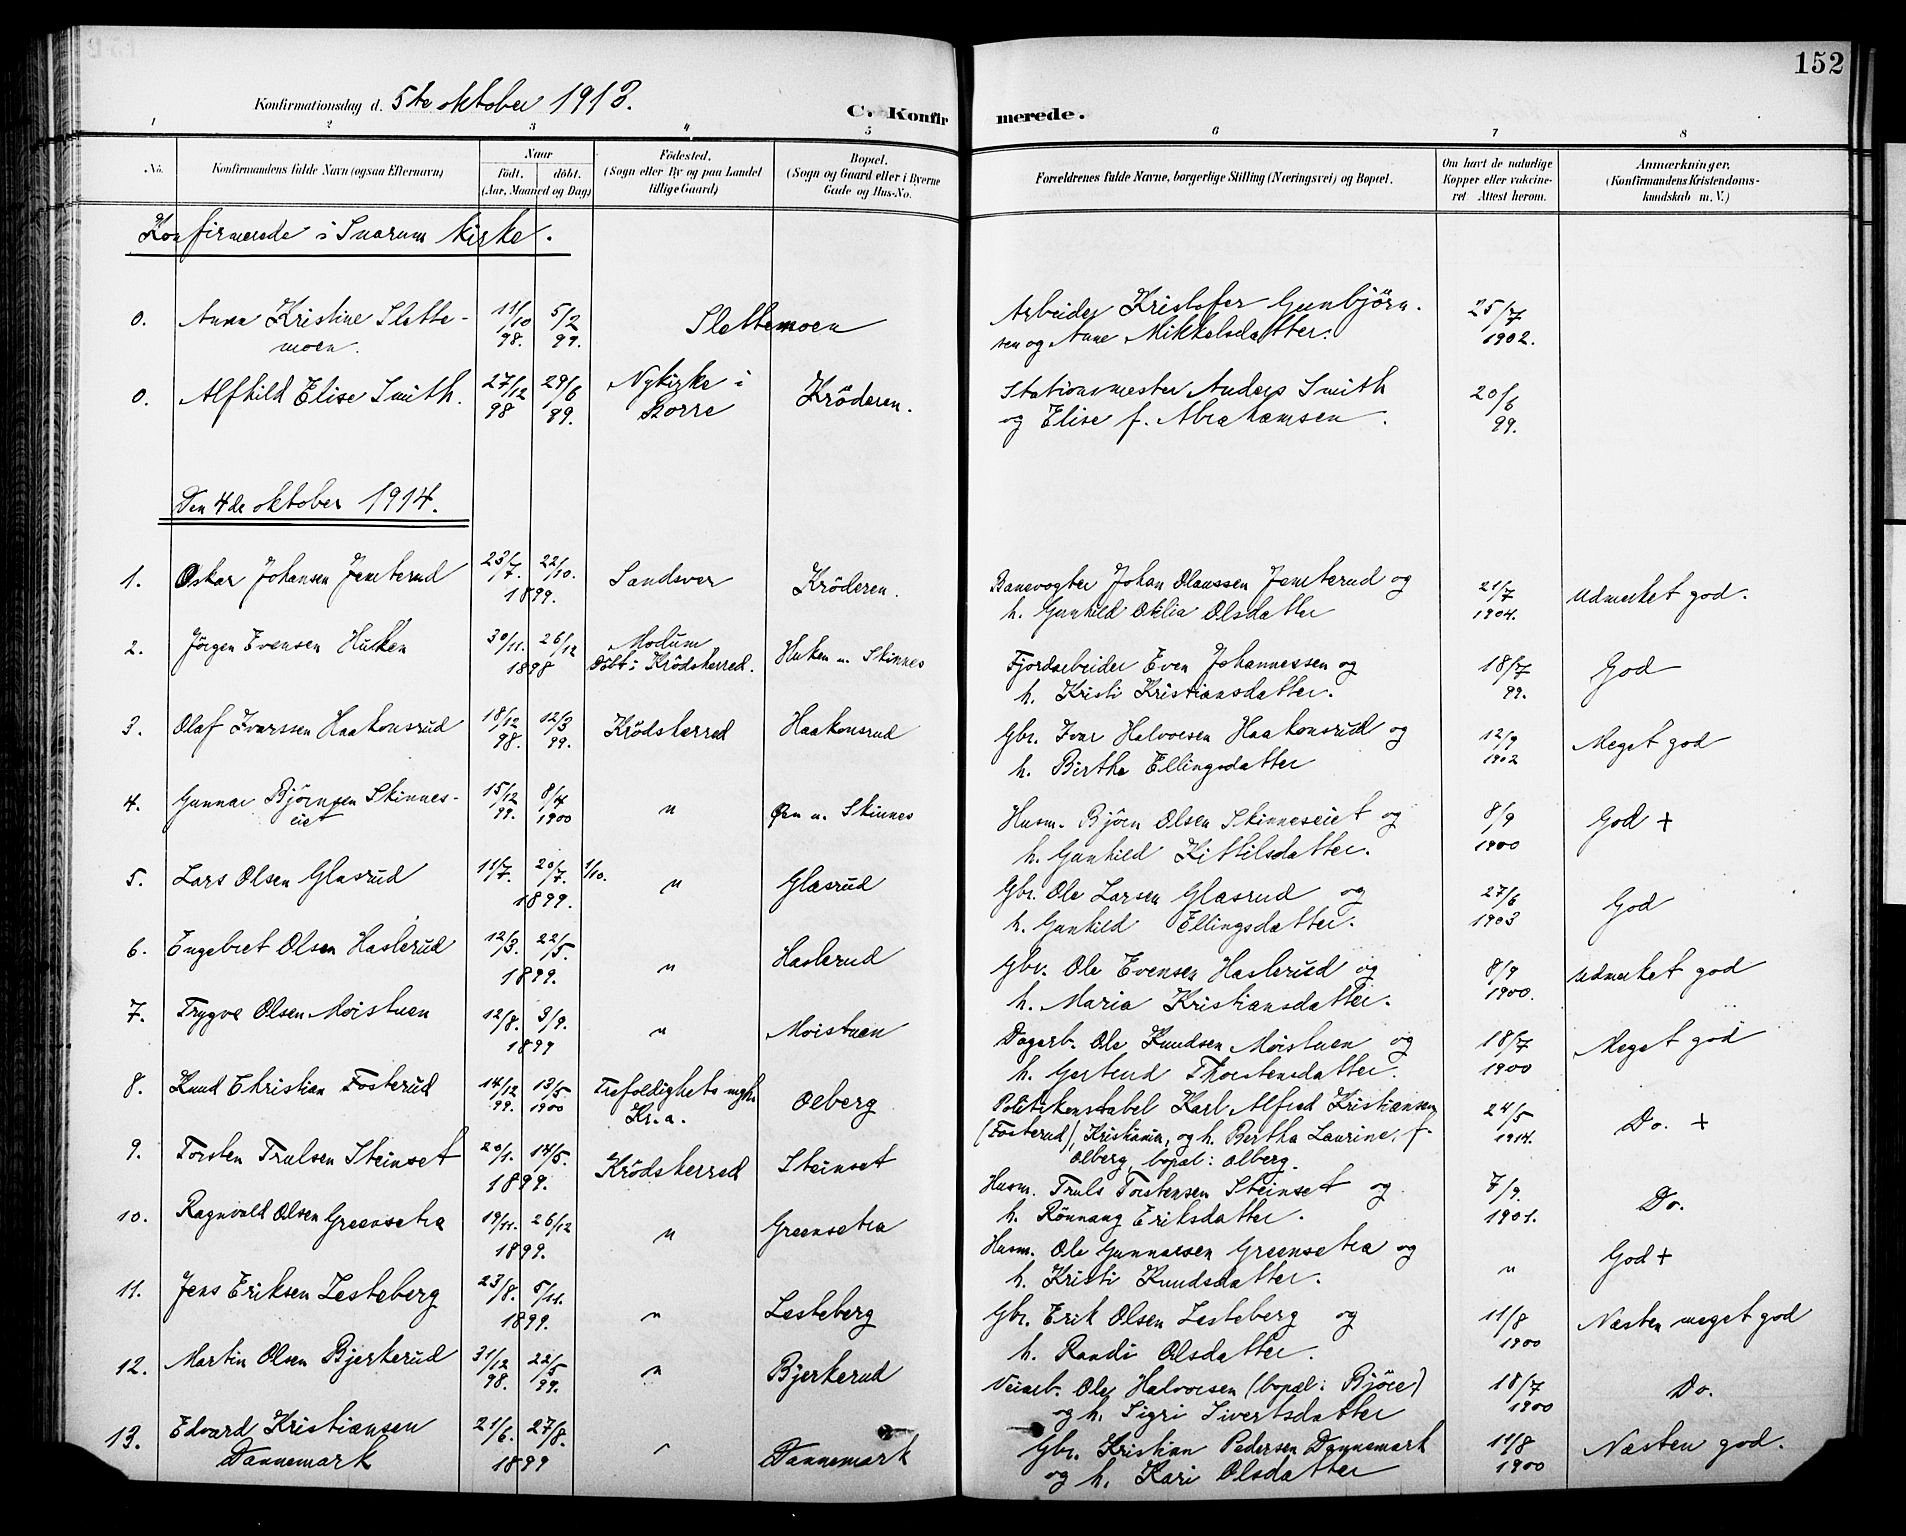 152
Konfirmationsdag d. 5te oktober 1913.
C. Konfirmerede.
1 2 3 4 5 6 7 8
No. Konfirmandens fulde Navn (ogsaa Efternavn) Naar Födt. döbt. (Aar, Maaned og Dag) Födested. (Sogn eller By og paa Landet tillige Gaard) Bopæl. (Sogn og Gaard eller i Byerne Gade og Hus-No. Forældrenes fulde Navne, borgerlige Stilling (Næringsvei) og Bopæl. Om havt de naturlige Kopper eller vakcineret Attest herom. Anmærkninger. (Konfirmandens Kristendomskundskab m. V.)
Konfirmerede i Snarum kirke.
0. Anna Kristine Slette- 11/10 98. 5/2 99. Slettemoen Arbeider Kristofer Gunbjörn- 25/7
moen. sen og Anne Mikkelsdatter. 1902.
0. Alfhild Elise Smith. 27/12 98 29/6 99. Nykirke i Kröderen. Stationsmester Anders Smith 20/6
Borre og Elise f. Abrahamsen. 99.
Den 4de oktober 1914.
1. Oskar Johansen Jemterud 23/7. 22/10. Sandsver Kröderen. Banevogter Johan Olaussen Jemterud og 21/7 Udmerket god.
1899. h. Gunhild Oklia Olsdatter 1904.
2. Jörgen Evensen Huken 30/11. 26/12 Modum Huken u. Skinnes Fjordarbeider Even Johannessen og 18/7 God
1898 Döbt i Krödsherred. h. Kristi Kristiansdatter. 99.
3. Olaf Ivarssen Haakonsrud 18/12 98. 12/3 99. Krödsherred Haakonsrud Gbr. Ivar Halvorsen Haakonsrud og 12/9 Meget god
h. Birthe Ellingsdatter 1902
4. Gunnar Björnsen Skinnes- 15/12 99. 8/4 1900 " Øen u. Skinnes Husm. Björn Olsen Skinneseiet og 8/9 God +
eiet h. Gunhild Kittilsdatter. 1900
5. Lars Olsen Glasrud 11/7. 20/7. 1/10. " Glæsrud Gbr. Ole Larsen Glasrud og 27/6 God
1899. h. Gunhild Ellingsdatter. 1903
6. Engebret Olsen Haslerud 12/3. 22/5. " Haslerud Gbr. Ole Evensen Haslerud og 8/9 Udmerket god
1899. h. Maria Kristiansdatter. 1900.
7. Trygve Olsen Moistuen 12/8. 3/9. " Moistuen Dagarb. Ole Knudsen Moistuen og 18/7 Meget god
1899 h. Gertrud Thorstensdatter. 1900
8. Knud Christian Fosterud 14/12 99. 13/5 1900 Trefoldighets mgh. Olberg Politikonstabel Karl Alfred Kristiansen 24/5 Do. +
Kr.a. (Fosterud), Kristiania, og h. Bertha Laurine, f. 1914.
Olberg, bopæl: Olberg.
9. Torsten Trulsen Steinset 20/1. 14/5. Krödsherred Steinset Husm. Truls Torstensen Steinset og 7/9. Do.
1899. h. Rönnaug Eriksdatter. 1901.
10. Ragnvald Olsen Greensetra 19/11. 26/12 " Greensetra Husm. Ole Gunnarsen Greensetra og " God +
1899. h. Kristi Knudsdatter.
11. Jens Eriksen Lesteberg 23/8. 5/11. " Lesteberg Gbr. Erik Olsen Lesteberg og 11/8 Næsten meget god
1899. h. Randi Olsdatter. 1900
12. Martin Olsen Bjerkerud 31/12 98. 22/5 99. " Bjerkerud Veiarb. Ole Halvorsen (bopæl: Björe) 18/7 Do.
og h. Sigri Sivertsdatter 1900
13. Edvard Kristiansen 21/6. 27/8. " Dannemark Gbr. Kristian Pedersen Dannemark 11/8 Næsten god.
Dannemark 1899 og h. Kari Olsdatter 1900